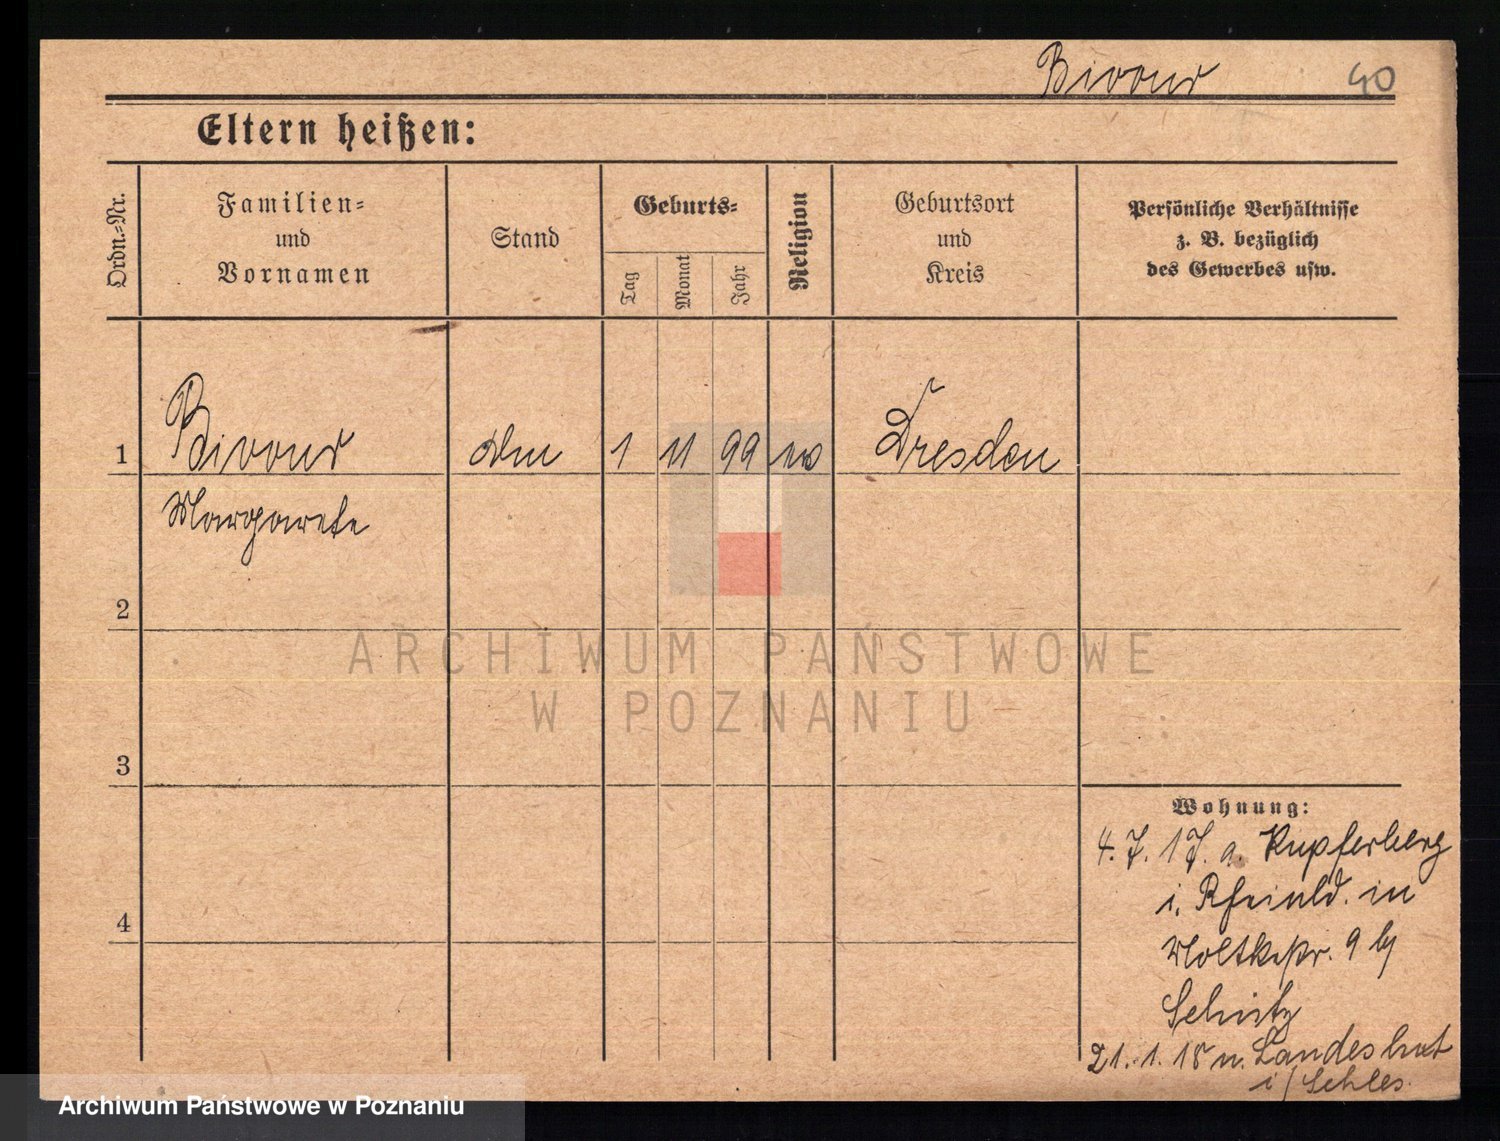 Bivour 40
Eltern heißen:
Ordn.-Nr.
Familien-
und
Vornamen
Stand
Geburts-
Tag
Monat
Jahr
Religion
Geburtsort
und
Kreis
Persönliche Verhältnisse
z. B. bezüglich
des Gewerbes usw.
1 Bivour 1 11 99 Dresden
Margarete
2
ARCHIWUM PAŃSTWOWE
W POZNANIU
3
Wohnung:
4. 7. 17. a. Kupferberg
i. Rheinld. in
Moltkestr. 9 b/
4
21. 1. 18 n. Landeshut
i/Schles.
Archiwum Państwowe w Poznaniu